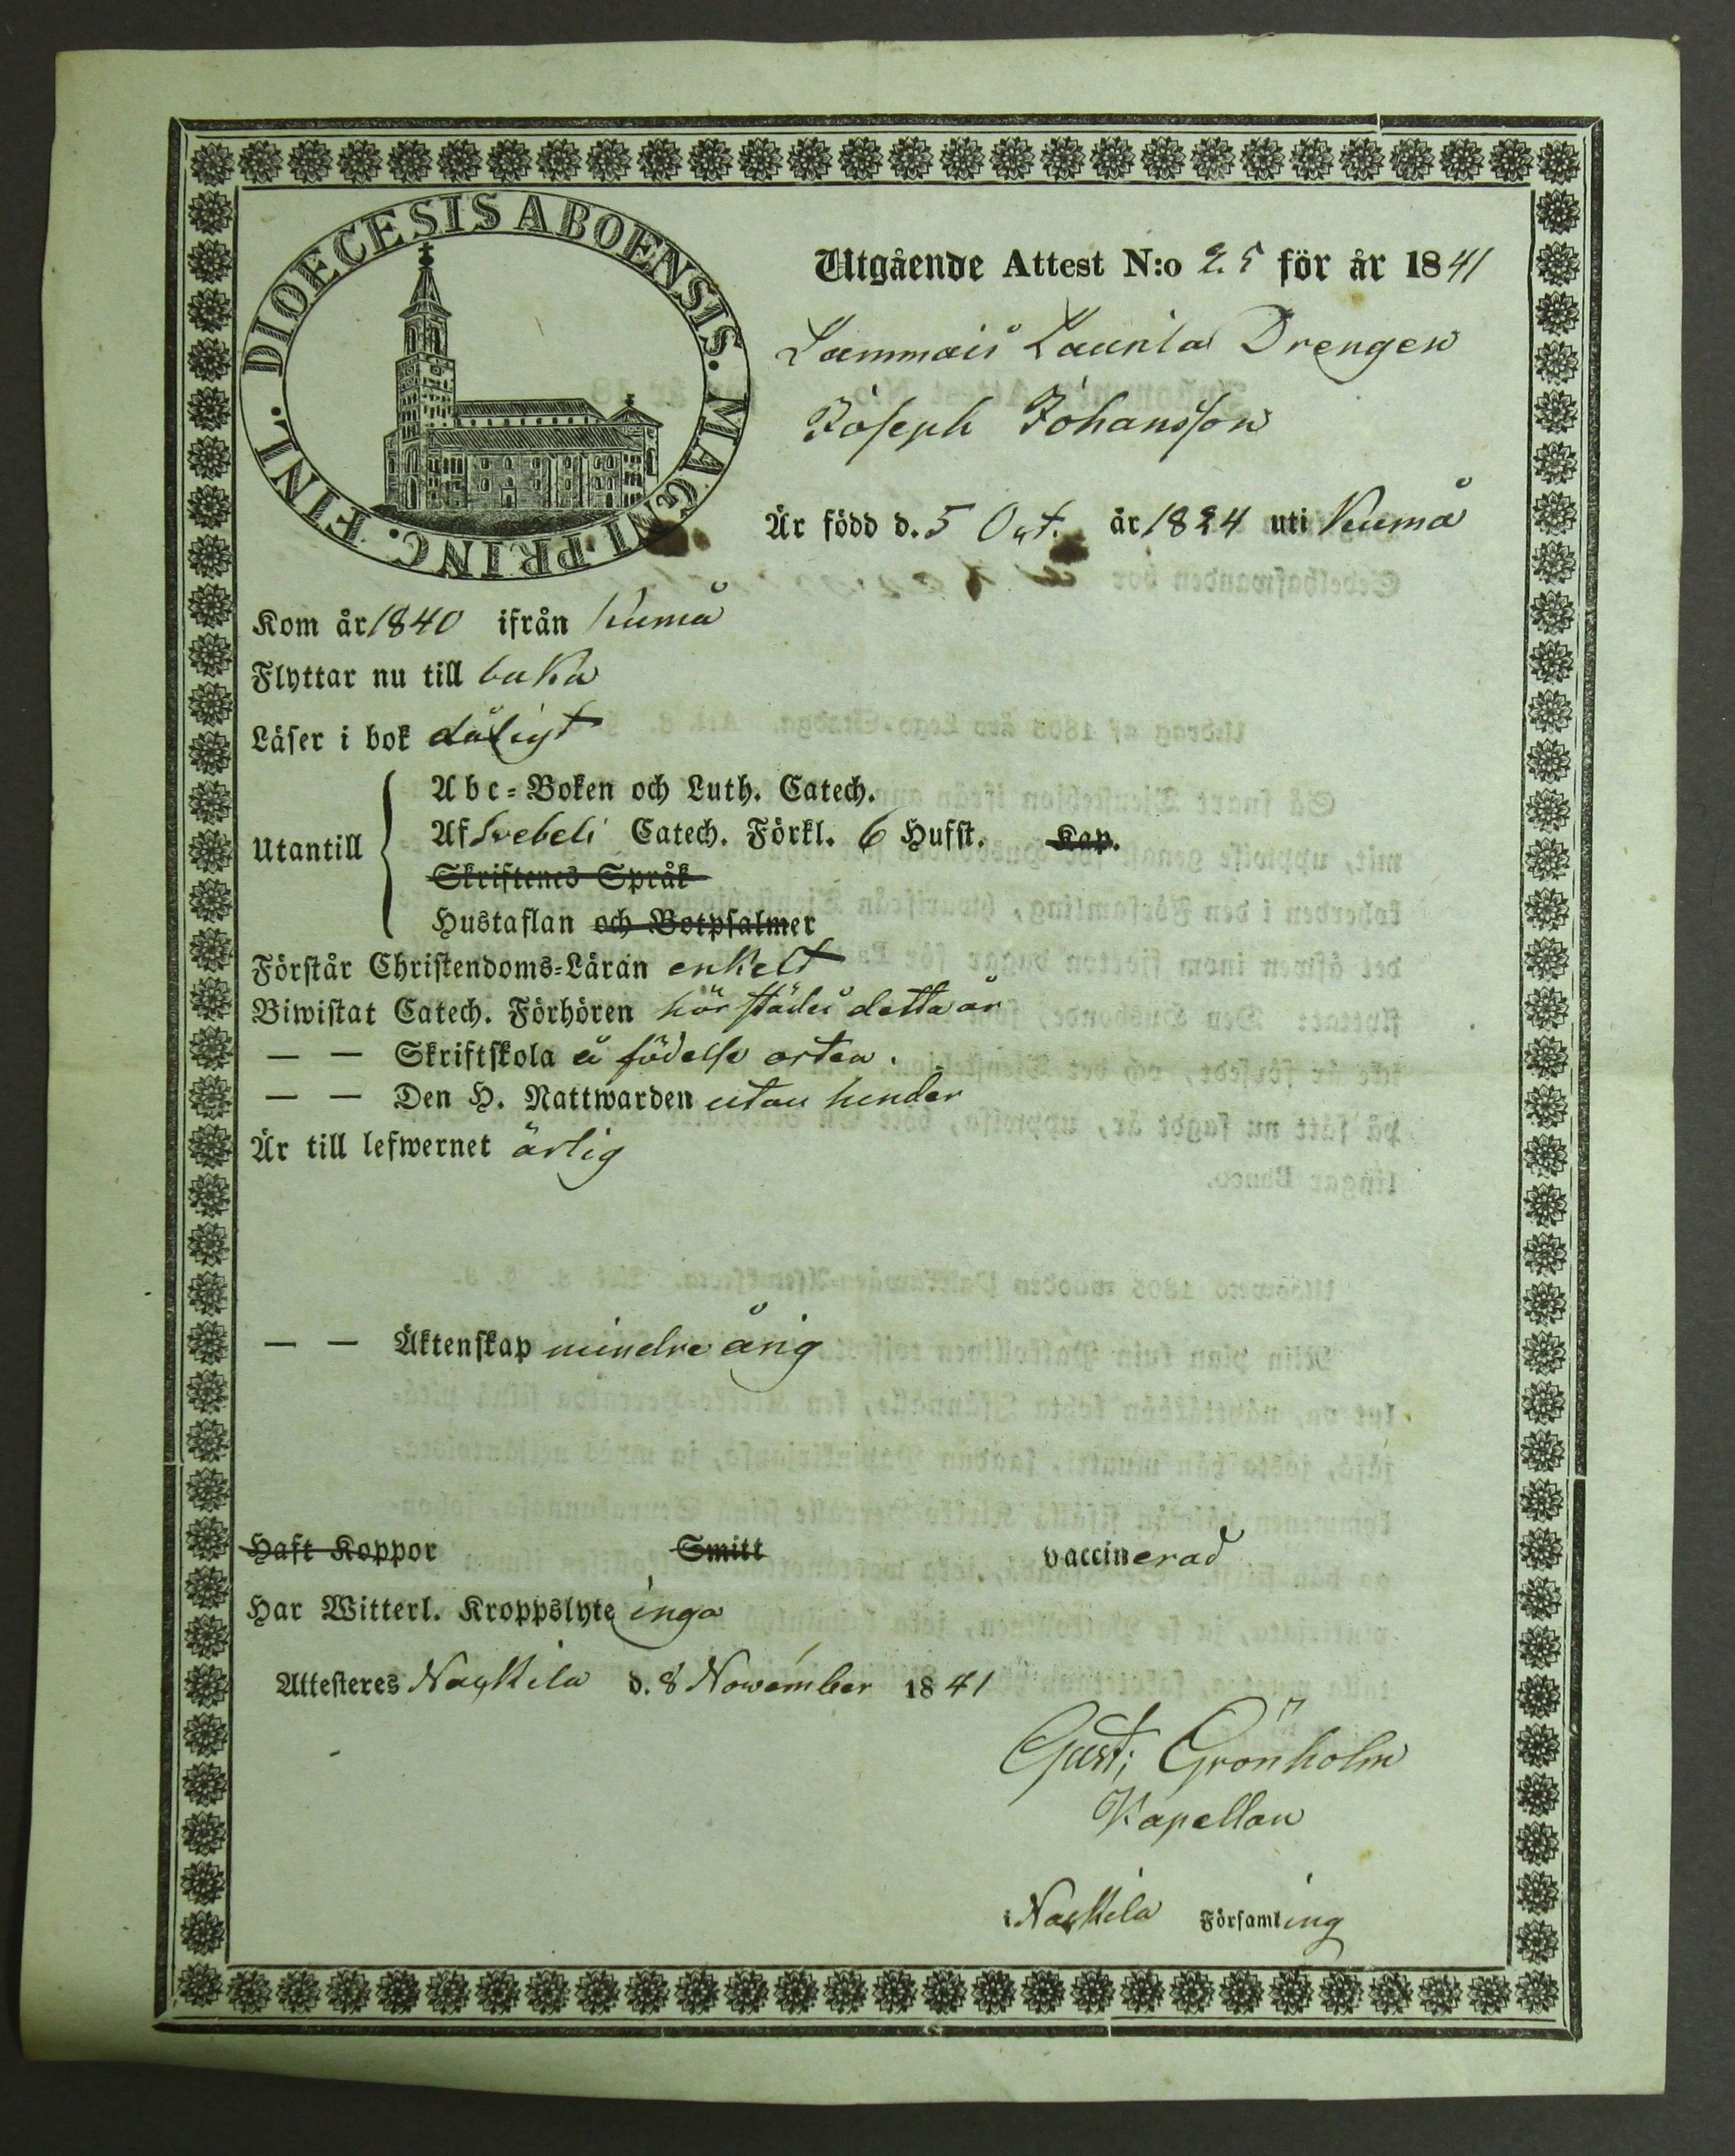 DIOECESIS ABOENSIS. MAGNI. PRINC. FINL.
Utgående Attest N:o 25 för år 1841
Lammais Launla Drengen
Joseph Johansson
Är född d. 5 Oct. år 1824 uti Kumå
Kom år 1840 ifrån Kumå
Flyttar nu till baka
Läser i bok dåligt
Utantill
Abc-Boken och Luth. Catech.
Af Svebeli Catech. Förkl. 6 Hufst. Kap.
Skriftenes Språk
Hustaflan och Botpsalmer
Förstår Christendoms-Läran enkelt
Biwistat Catech. Förhören härstädes detta år
— — Skriftskola å födelse orten.
— — Den H. Nattwarden utan hinder
Är till lefwernet ärlig
— — Äktenskap mindre årig
Haft Koppor Smitt vaccinerad
Har Witterl. Kroppslyte inga
Attesteres Nackila d. 8 November 1841
Gust. Grönholm
Kapellan
i Nackila Församling